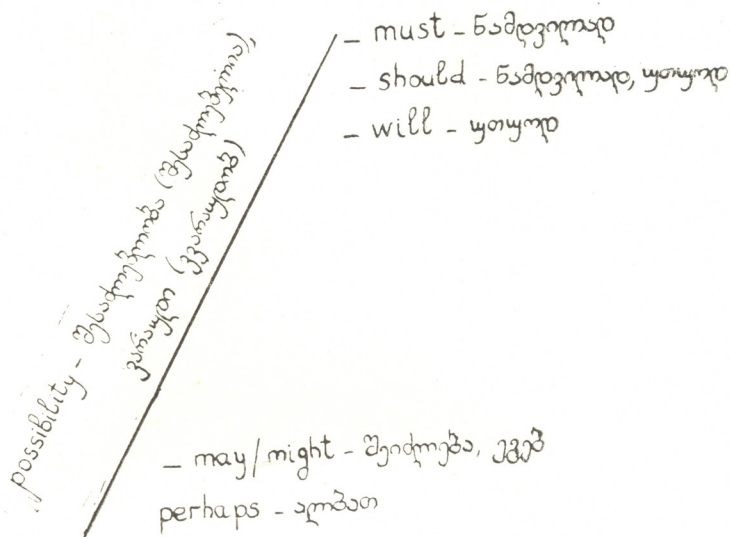 possibility - შესაძლებლობა (შესაძლებელია),
ვარაუდი (ვვარაუდობ)
- must - ნამდვილად
- should - ნამდვილად, უთუოდ
- will - უთუოდ
- may/might - შეიძლება, ეგებ
perhaps - ალბათ